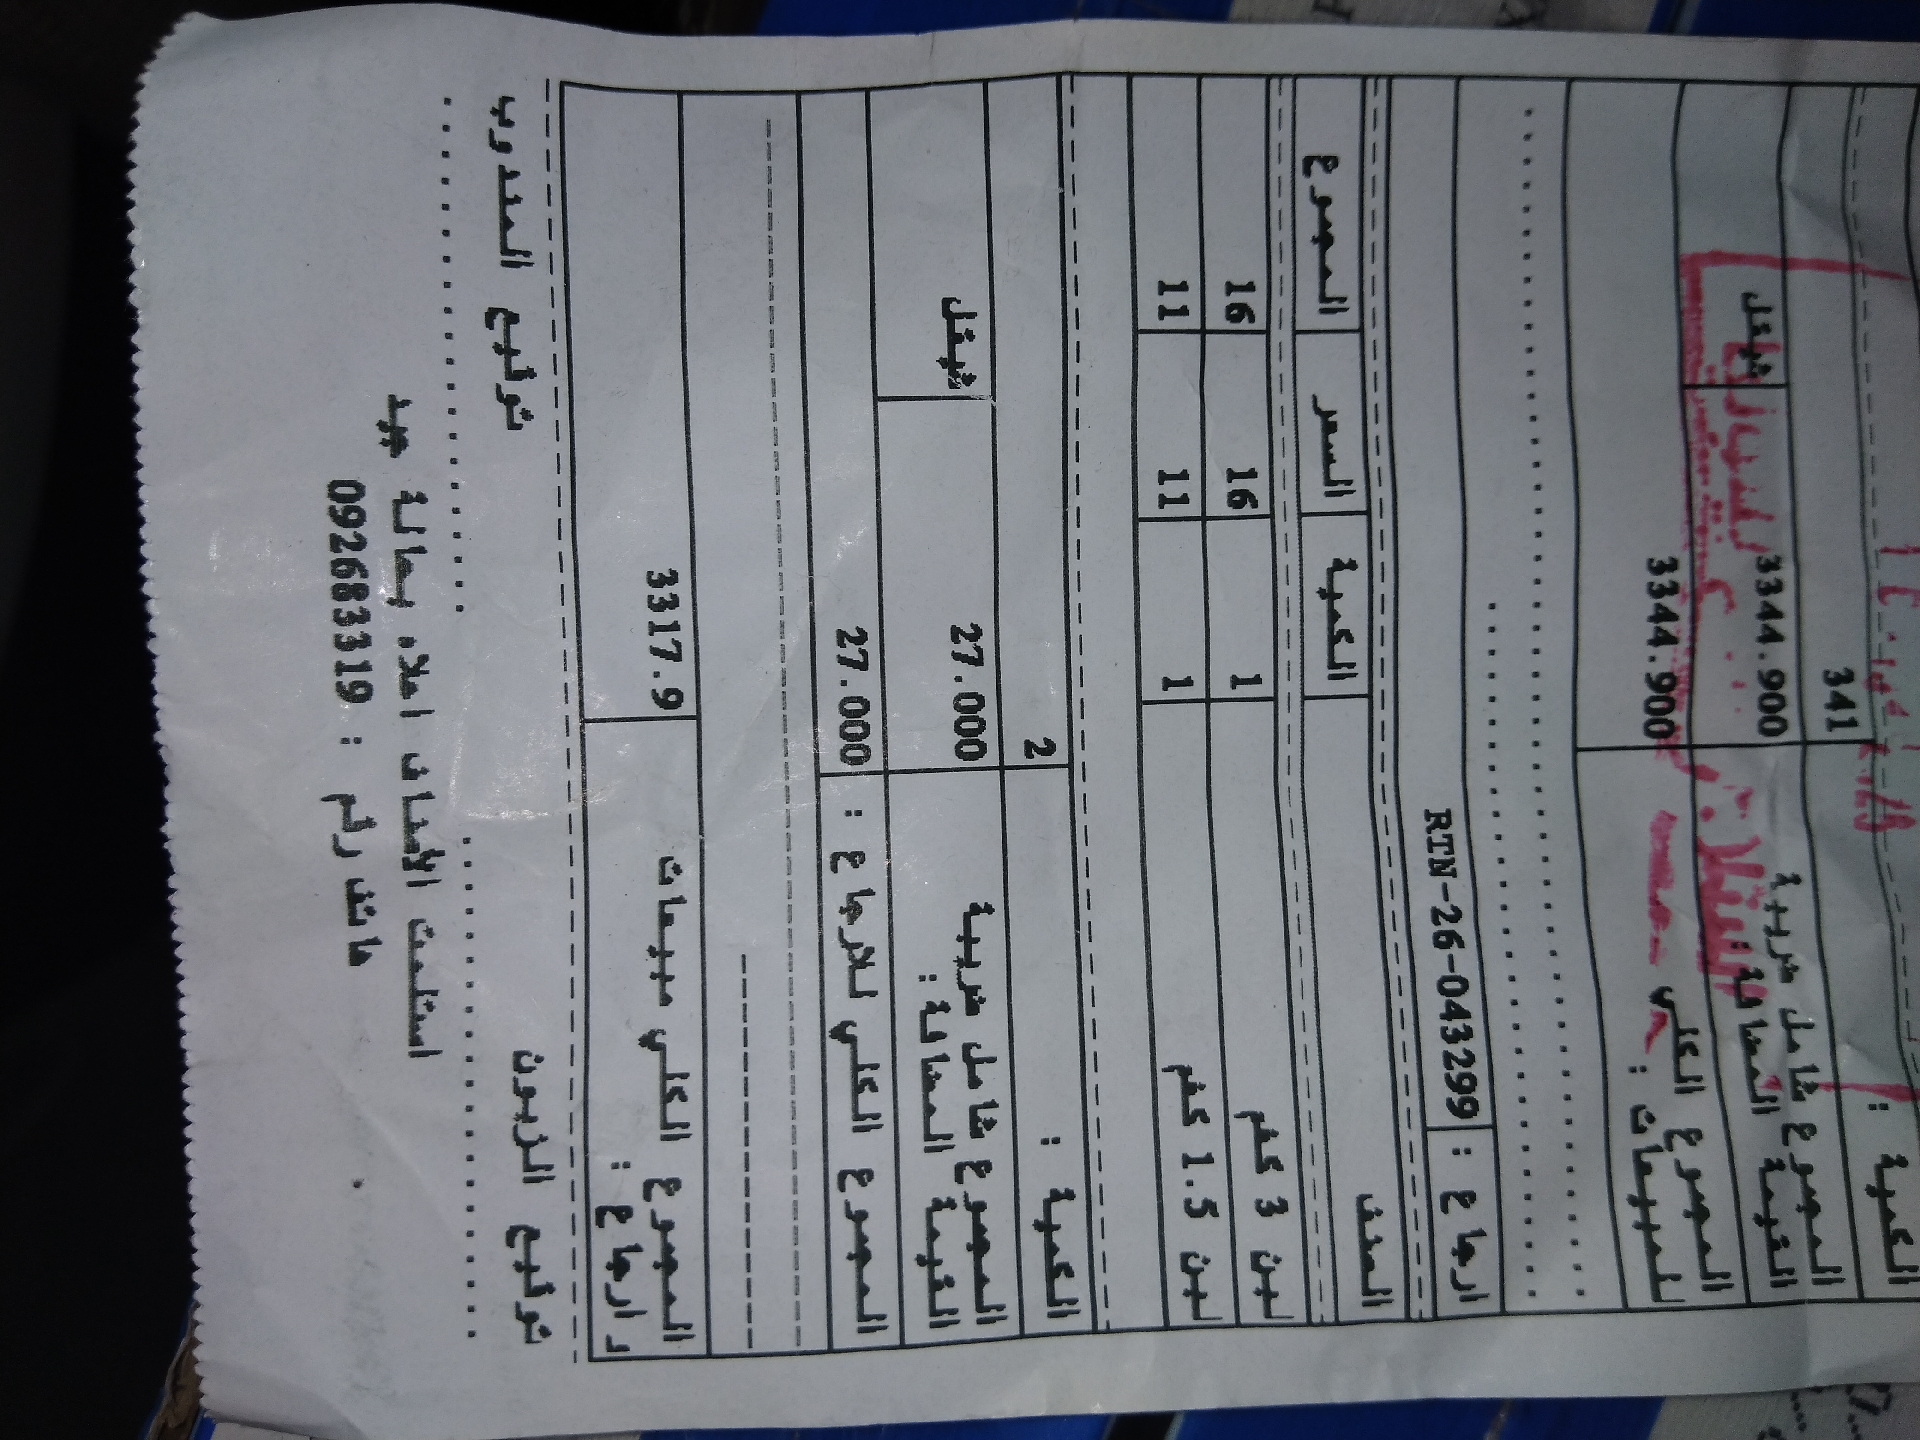 الكمية : 341
المجموع شامل ضريبة القيمة المضافة: 3344.900 شيقل
المجموع الكلي للمبيعات : 3344.900
ارجاع : RTN-26-043299
الصنف الكمية السعر المجموع
لبن 3 كغم 1 16 16
لبن 1.5 كغم 1 11 11
الكمية : 2
المجموع شامل ضريبة القيمة المضافة: 27.000 شيقل
المجموع الكلي للارجاع : 27.000
المجموع الكلي مبيعات و ارجاع: 3317.9
توقيع الزبون توقيع المندوب
استلمت الأصناف اعلاه بحالة جيدة
هاتف رقم : 092683319